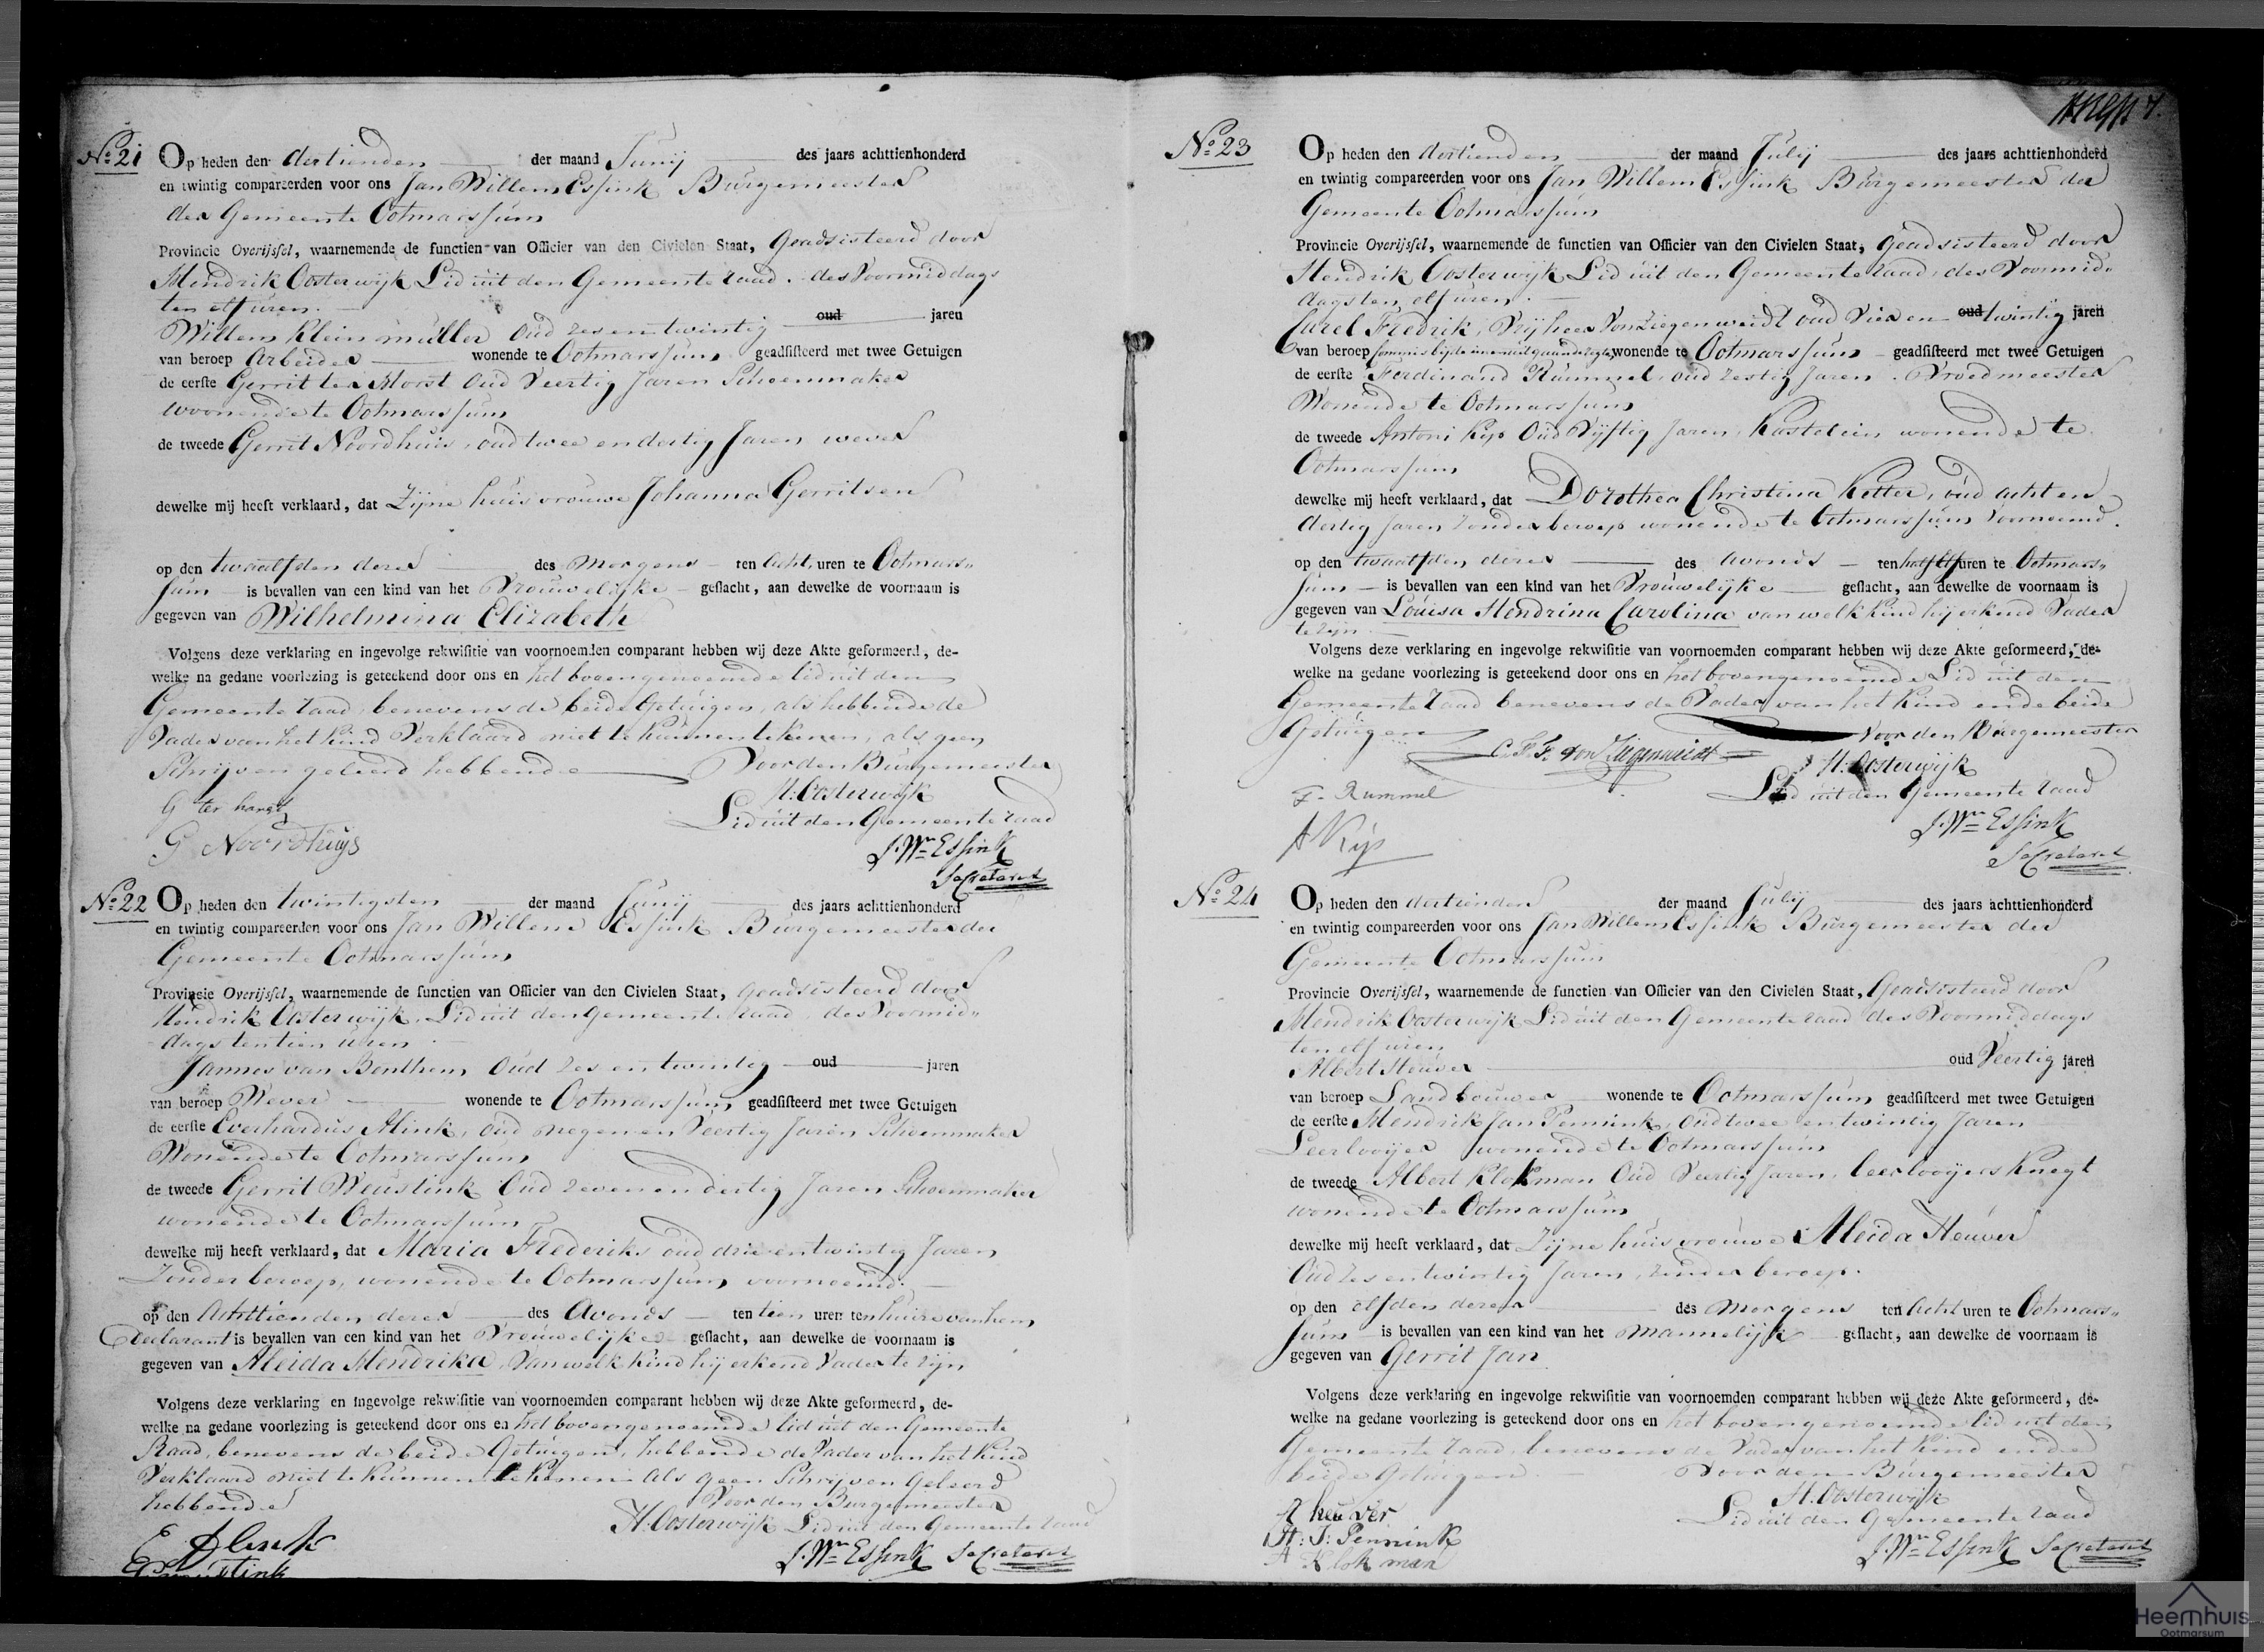 No. 21 Op heden den dertienden der maand Junij des jaars achttienhonderd
en twintig compareerden voor ons Jan Willem Essink Burgemeester
der Gemeente Ootmarssum
Provincie Overijsſel, waarnemende de functien van Officier van den Civielen Staat, Geadsisteerd door
Hendrik Oosterwijk Lid uit den Gemeente raad. des Voormiddags
ten elf uren.
Willem Kleinmuller oud zes en twintig oud jaren
van beroep Arbeider wonende te Ootmarssum geadſiſteerd met twee Getuigen
de eerſte Gerrit ter Horst oud Veertig Jaren Schoenmaker
woonende te Ootmarssum
de tweede Gerrit Noordhuis, oud twee en dertig Jaren wever
dewelke mij heeft verklaard, dat Zijne huisvrouwe Johanna Gerritsen
op den twaalfden dezer des Morgens ten Acht uren te Ootmars„
sum is bevallen van een kind van het Vrouwelijke geſlacht, aan dewelke de voornaam is
gegeven van Wilhelmina Elizabeth
Volgens deze verklaring en ingevolge rekwiſitie van voornoemden comparant hebben wij deze Akte geformeerd, de-
welke na gedane voorlezing is geteekend door ons en het bovengenoemde lid uit den
Gemeente raad, benevens de beide Getuigen, als hebbende de
Vader van het kind Verklaard niet te kunnen tekenen, als geen
Schrijven geleerd hebbende Voor den Burgemeester
G ter horst H: Oosterwijk
Lid uit den Gemeente raad
G Noordhuijs
J. Wm Essink
Secretaris
No. 22 Op heden den twintigsten der maand Junij des jaars achttienhonderd
en twintig compareerden voor ons Jan Willem Essink Burgemeester der
Gemeente Ootmarssum
Provincie Overijsſel, waarnemende de functien van Officier van den Civielen Staat, Geadsisteerd door
Hendrik Oosterwijk, Lid uit den Gemeente raad, des Voormid„
dags ten tien uren
Jannes van Benthem, Oud zes en twintig oud jaren
van beroep Wever wonende te Ootmarssum geadſiſteerd met twee Getuigen
de eerſte Everhardus Alink, oud negen en Veertig Jaren Schoenmaker
Wonende te Ootmarssum
de tweede Gerrit Weustink Oud zeven en dertig Jaren Schoenmaker
wonende te Ootmarssum
dewelke mij heeft verklaard, dat Maria Frederiks oud drie en twintig Jaren,
Zonder beroep, wonende te Ootmarssum voornoemd;
op den Achttienden dezer des Avonds ten tien uren ten huize van hem
Declarant is bevallen van een kind van het Vrouwelijke geſlacht, aan dewelke de voornaam is
gegeven van Aleida Hendrika, Van welk kind hij erkend Vader te zijn
Volgens deze verklaring en ingevolge rekwiſitie van voornoemden comparant hebben wij deze Akte geformeerd, de-
welke na gedane voorlezing is geteekend door ons en het bovengenoemde lid uit den Gemeente
Raad, benevens de beide Getuigen, hebbende de Vader van het kind
Verklaard niet te kunnen tekenen als geen Schrijven geleerd
hebbende Voor den Burgemeester
H. Oosterwijk Lid uit den Gemeente raad
E Alink
J. Wm Essink Secretaris
No. 23 Op heden den dertienden der maand Julij des jaars achttienhonderd
en twintig compareerden voor ons Jan Willem Essink Burgemeester der
Gemeente Ootmarssum
Provincie Overijsſel, waarnemende de functien van Officier van den Civielen Staat, Geadsisteerd door
Hendrik Oosterwijk Lid uit den Gemeente raad, des Voormid„
dags ten elf uren.
Carel Fredrik, Vrijheer Von Ziegenweidt oud Vier en oud twintig jaren
van beroep Commis bij de wonende te Ootmarssum geadſiſteerd met twee Getuigen
de eerſte Ferdinand Rummel, oud zestig Jaren. Vroedmeester
Wonende te Ootmarssum
de tweede Antoni Kip Oud Vijftig Jaren, Kastelein wonende te
Ootmarssum
dewelke mij heeft verklaard, dat Dorothea Christina Ketter, oud acht en
dertig Jaren zonder beroep wonende te Ootmarssum Voornoemd.
op den twaalfden dezer des avonds ten half elf uren te Ootmars„
sum is bevallen van een kind van het Vrouwelijke geſlacht, aan dewelke de voornaam is
gegeven van Louisa Hendrina Carolina van welk kind hij erkend Vader
te zijn
Volgens deze verklaring en ingevolge rekwiſitie van voornoemden comparant hebben wij deze Akte geformeerd, de-
welke na gedane voorlezing is geteekend door ons en het bovengenoemde Lid uit den
Gemeente raad benevens de Vader van het kind en de beide
Getuigen Voor den Burgemeester
C. F. F. von Ziegenweidt H: Oosterwijk
F. Rummel Lid uit den Gemeente raad
A Kip
J. Wm Essink
Secretaris
No. 24 Op heden den dertienden der maand Julij des jaars achttienhonderd
en twintig compareerden voor ons Jan Willem Essink Burgemeester der
Gemeente Ootmarssum
Provincie Overijsſel, waarnemende de functien van Officier van den Civielen Staat, Geadsisteerd door
Hendrik Oosterwijk Lid uit den Gemeente raad des Voormiddags
ten elf uren
Albert Heuver oud Veertig jaren
van beroep Landbouwer wonende te Ootmarssum geadſiſteerd met twee Getuigen
de eerſte Hendrik Jan Pennink, oud twee en twintig Jaren
Leerlooijer wonende te Ootmarssum
de tweede Albert Klokman Oud Veertig Jaren, leerlooijers Knegt
wonende te Ootmarssum
dewelke mij heeft verklaard, dat Zijne huisvrouwe Aleida Heuver
Oud zes en twintig Jaren, zonder beroep.
op den elfden dezer des Morgens ten Acht uren te Ootmars„
sum is bevallen van een kind van het Mannelijk geſlacht, aan dewelke de voornaam is
gegeven van Gerrit Jan
Volgens deze verklaring en ingevolge rekwiſitie van voornoemden comparant hebben wij deze Akte geformeerd, de-
welke na gedane voorlezing is geteekend door ons en het bovengenoemde lid uit den
Gemeente raad, benevens de Vader van het kind en de
beide Getuigen. Voor den Burgemeester
A heuver H. Oosterwijk
H: J: Pennink Lid uit den Gemeente raad
A Klokman J. Wm Essink Secretaris
Heemhuis
Ootmarsum